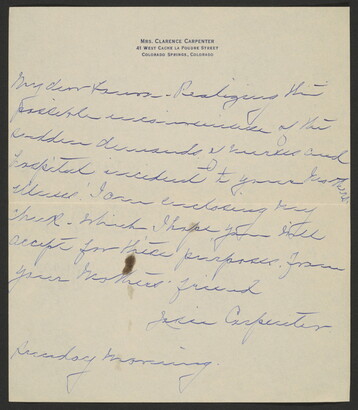 MRS. CLARENCE CARPENTER
41 WEST CACHE LA POUDRE STREET
COLORADO SPRINGS, COLORADO
My dear - Realizing the
possible inconvenience of the
sudden demands of nurses and
hospital incident to your Mothers
illness I am enclosing my
check - Which I hope you will
accept for these purposes. from
your Mothers' friend
Carpenter
Sunday Morning.